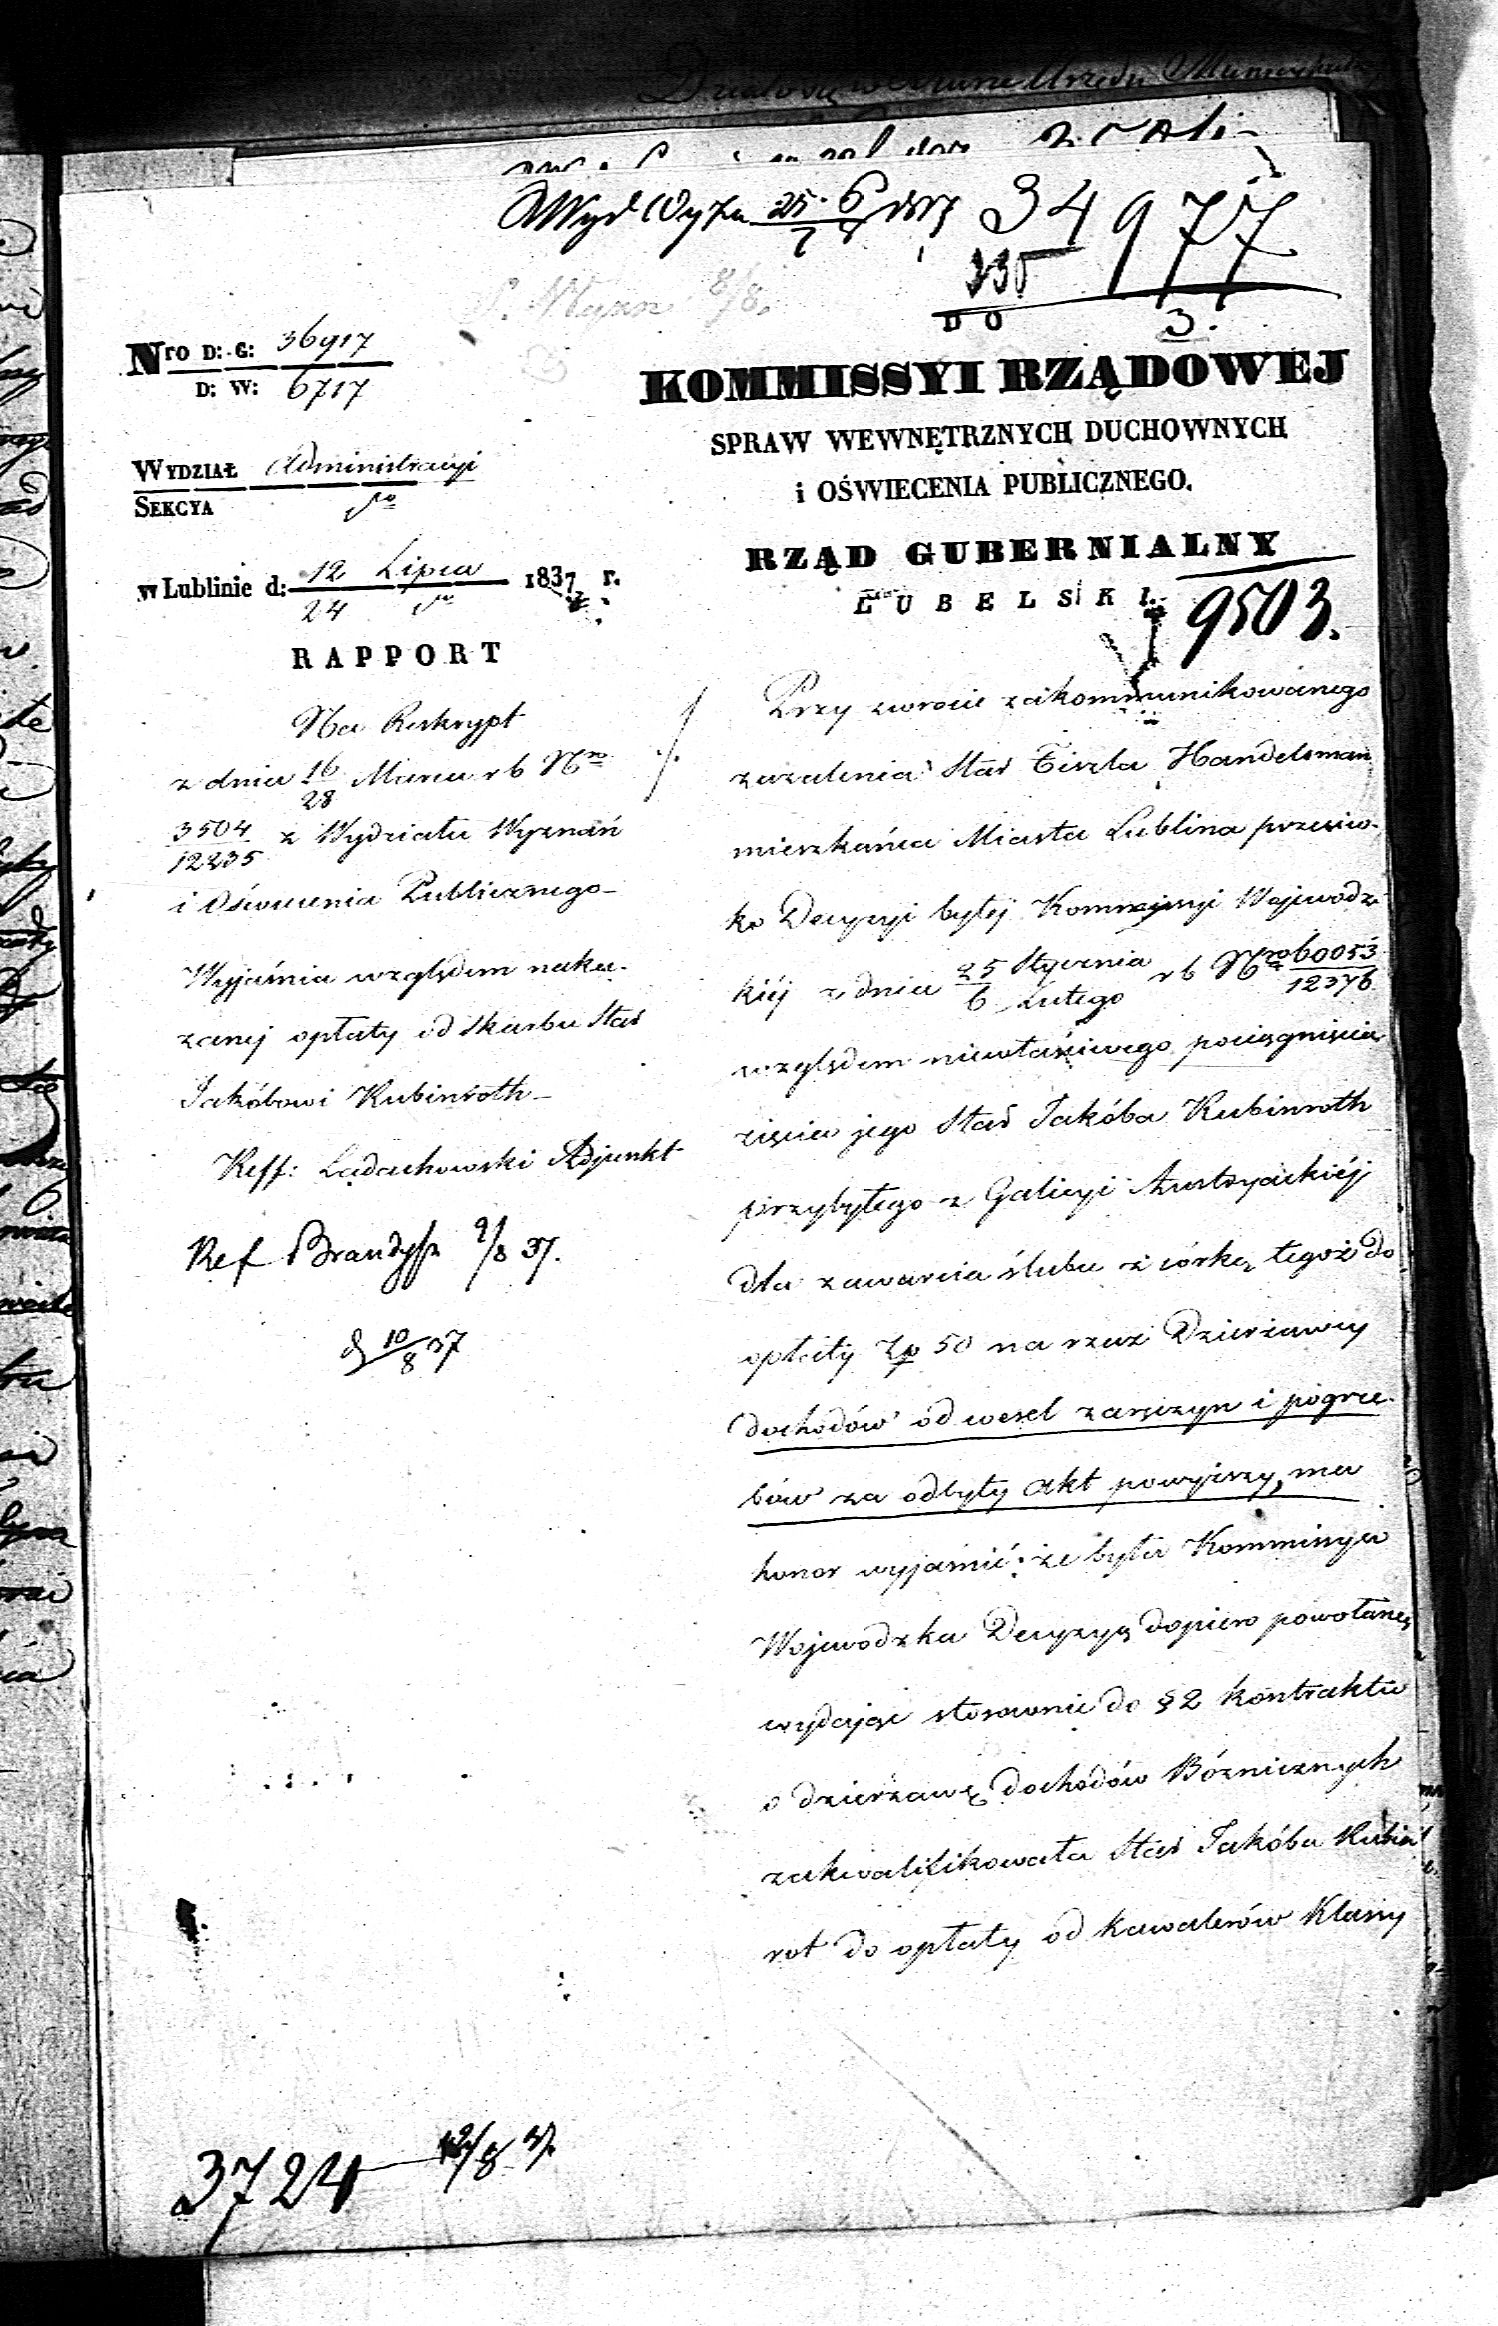 34977
335
3.
DO
KOMMISSYI RZĄDOWEJ
SPRAW WEWNĘTRZNYCH DUCHOWNYCH
i OŚWIECENIA PUBLICZNEGO.
RZĄD GUBERNIALNY
LUBELSKI.
9503.
Nro D: G: 36917
D: W: 6717
WYDZIAŁ Administracyi
SEKCYA
w Lublinie d: 12 Lipca 1837 r.
24
RAPPORT
Na Reskrypt
z dnia 16/28 Marca r b Nro
3504/12235 z Wydziału Wyznań
i Oświecenia Publicznego
Wyjaśnia względem naka-
zanej opłaty od Skarbu Star
Jakóbowi Rubinroth
Reff: Ładachowski Adjunkt
Ref Brandys 9/8 37.
10/8 37
Przy zwrocie zakommunikowanego
zażalenia Star Fiszla Handelsman
mieszkańca Miasta Lublina przeciw-
ko Decyzyi byłej Kommissyi Wojewódz-
kiéj z dnia 25 Stycznia/6 Lutego r b Nro 60053/12376
względem niewłaściwego pociągnięcia
zięcia jego Star Jakóba Rubinroth
przybyłego z Galicyi Austryackiéj
dla zawarcia ślubu z córką tegoż do
opłaty Zp 50 na rzecz Dzierżawcy
dochodów od wesel zaręczyn i pogrze-
bów za odbyty akt powyższy, ma
honor wyjaśnić: że była Kommissya
Wojewodzka Decyzyą dopiero powołaną
wydając stosownie do § 2 kontraktu
o dzierżawę dochodów Bóżnicznych
zakwalifikowała Star Jakóba Rubin
rot do opłaty od kawalerów Klassy
3724 12/8 37.